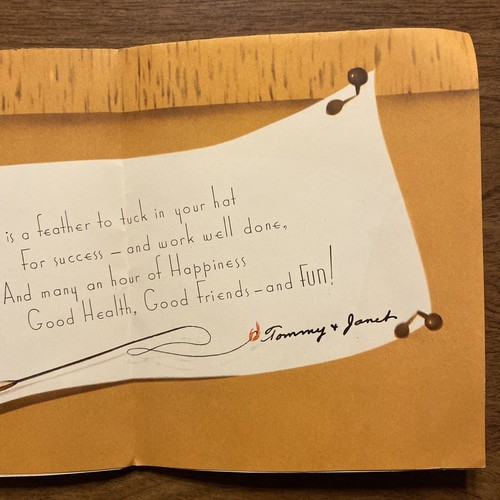 is a feather to tuck in your hat
For success – and work well done,
And many an hour of Happiness
Good Health, Good Friends – and Fun!
Tommy + Janet